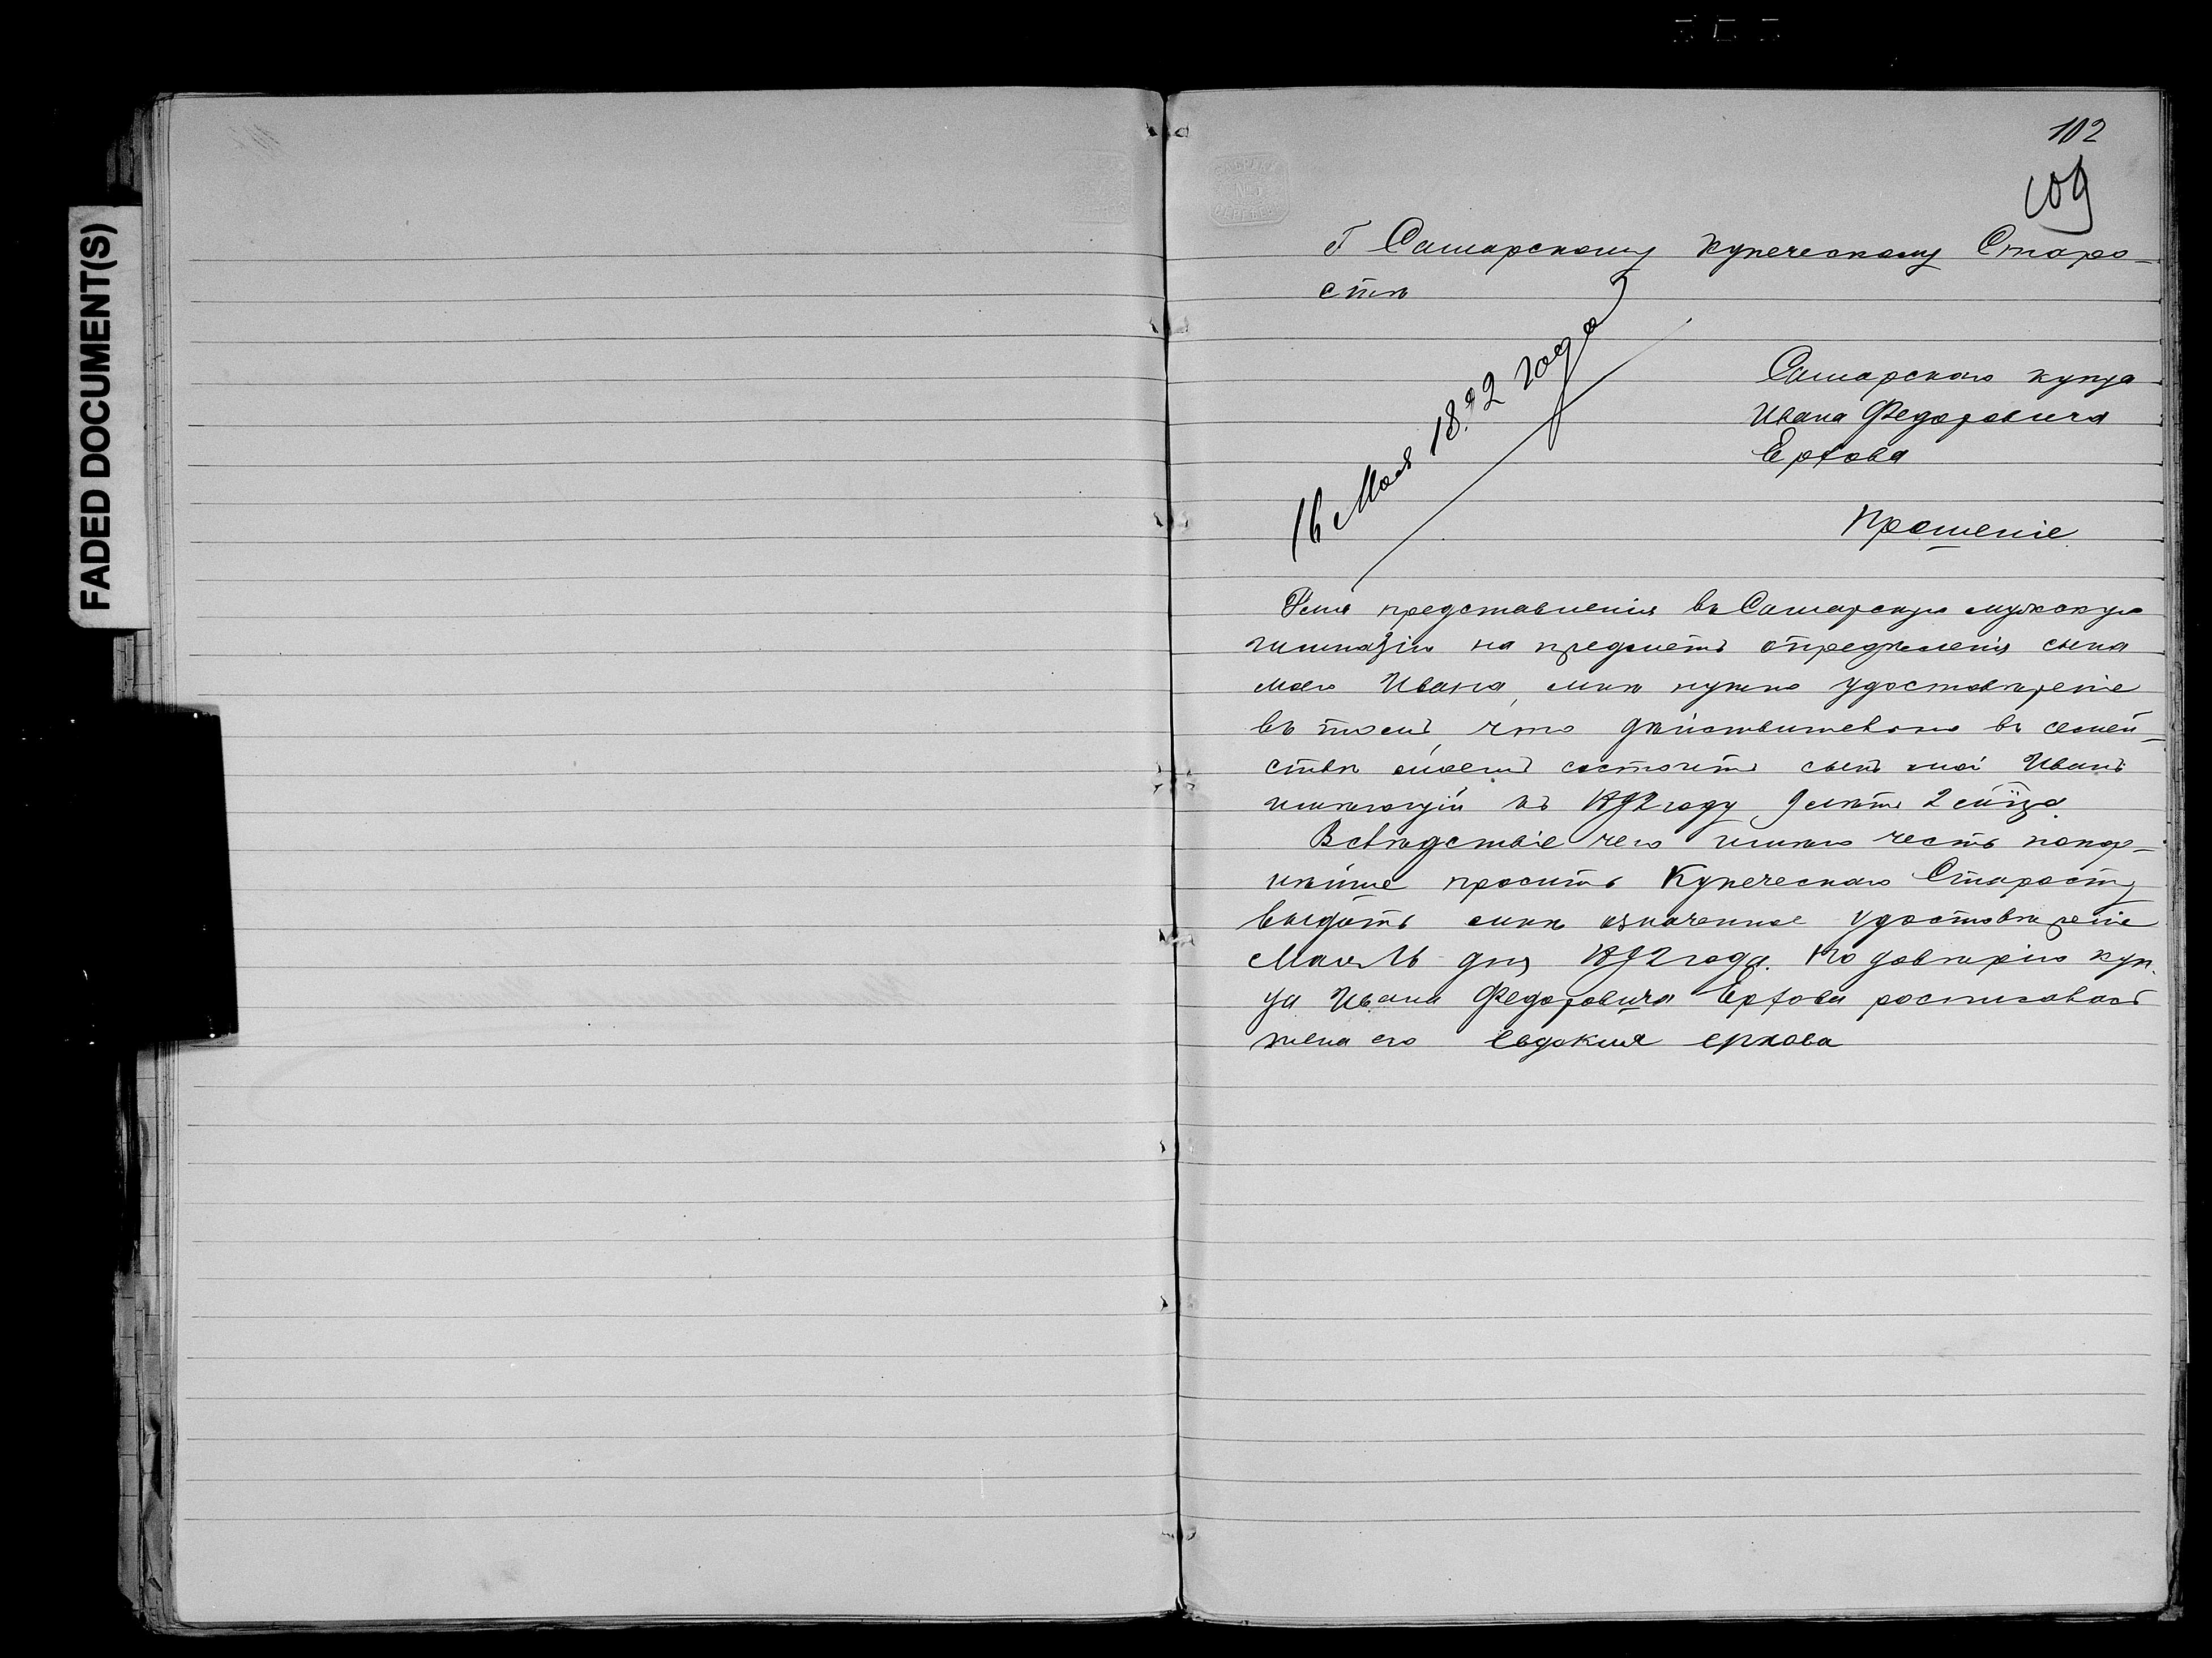 FADED DOCUMENT(S)
102
109
Г Самарскому купеческому Старо-
стѣ
16 Мая 1892 года
Самарскаго купца
Ивана Федоровича
Ерхова
Прошеніе
Для представленія въ Самарскую мужскую
гимназію на предметъ опредѣленія сына
моего Ивана, мнѣ нужно удостовѣреніе
въ томъ что дѣйствительно въ семей-
ствѣ моемъ состоитъ сынъ мой Иванъ
имѣющій въ 1892 году 9 лѣтъ 2 мѣца
Вслѣдствіе чего имѣю честь покор-
нѣйше просить Купеческаго Старосту
выдать мнѣ означенное удостовѣреніе
Мая 16 дня 1892 года. По довѣрію куп-
ца Ивана Федоровича Ерхова росписалась
жена его Евдокия ерхова